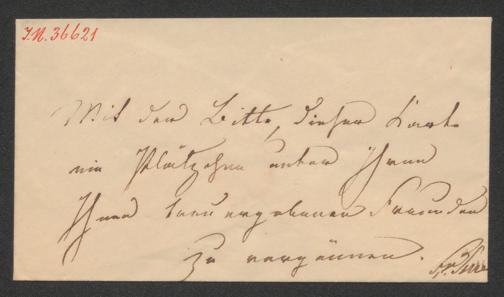 I.N. 36621
Mit der Bitte, dieser Karte
ein Plätzchen unter Ihren
Ihnen treu ergebenen Freunden
zu vergönnen.